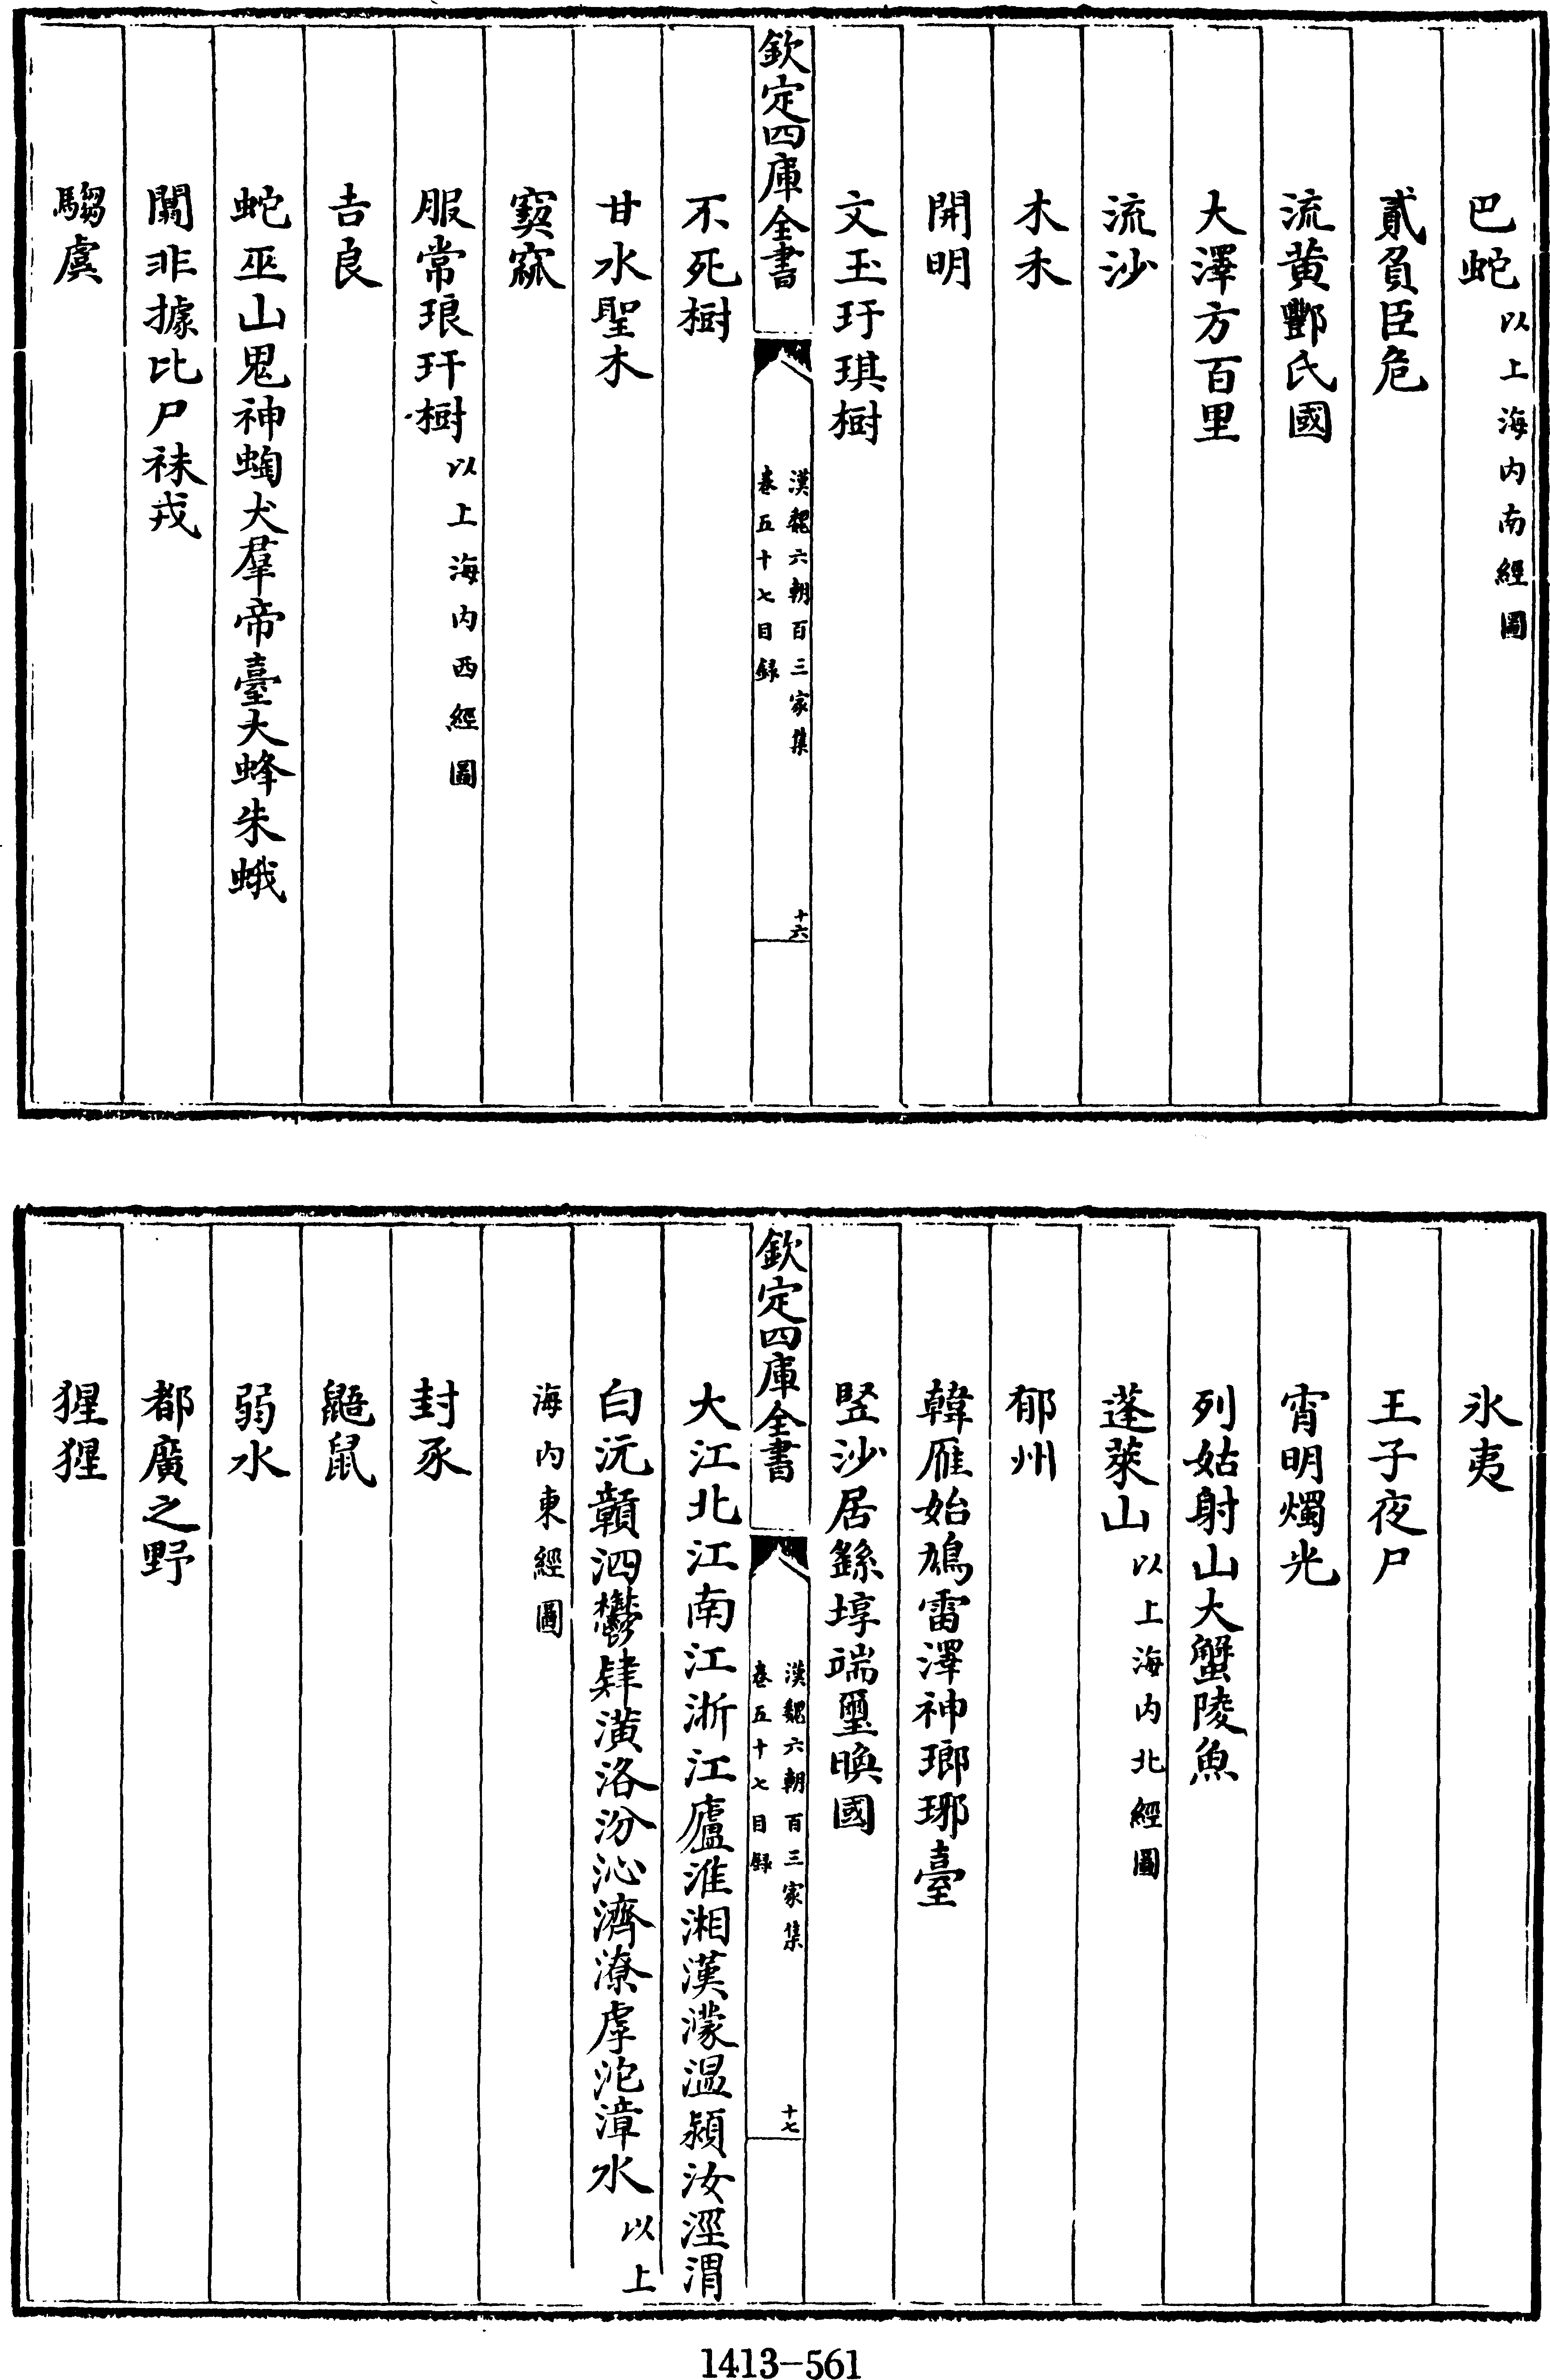 巴蛇以上海内南經圖
貳負臣危
流黄酆氏國
大澤方百里
流沙
木禾
開明
文玉玗琪樹
欽定四庫全書
漢魏六朝百三家集
卷五十七目録
十六
不死樹
甘水聖木
窫窳
服常琅玕樹以上海内西經圖
吉良
蛇巫山鬼神蜪犬羣帝臺大蜂朱蛾
闒非據比尸袜戎
騶虞
氷夷
王子夜尸
宵明燭光
列姑射山大蟹陵魚
蓬萊山以上海内北經圖
郁州
韓雁始鳩雷澤神瑯琊臺
竪沙居繇埻端璽㬇國
欽定四庫全書
漢魏六朝百三家集
卷五十七目録
十七
大江北江南江浙江廬淮湘漢濛温潁汝涇渭
白沅贛泗鬱肄潢洛汾沁濟潦虖沱漳水以上
海内東經圖
封豕
鼯鼠
弱水
都廣之野
猩猩
1413-561